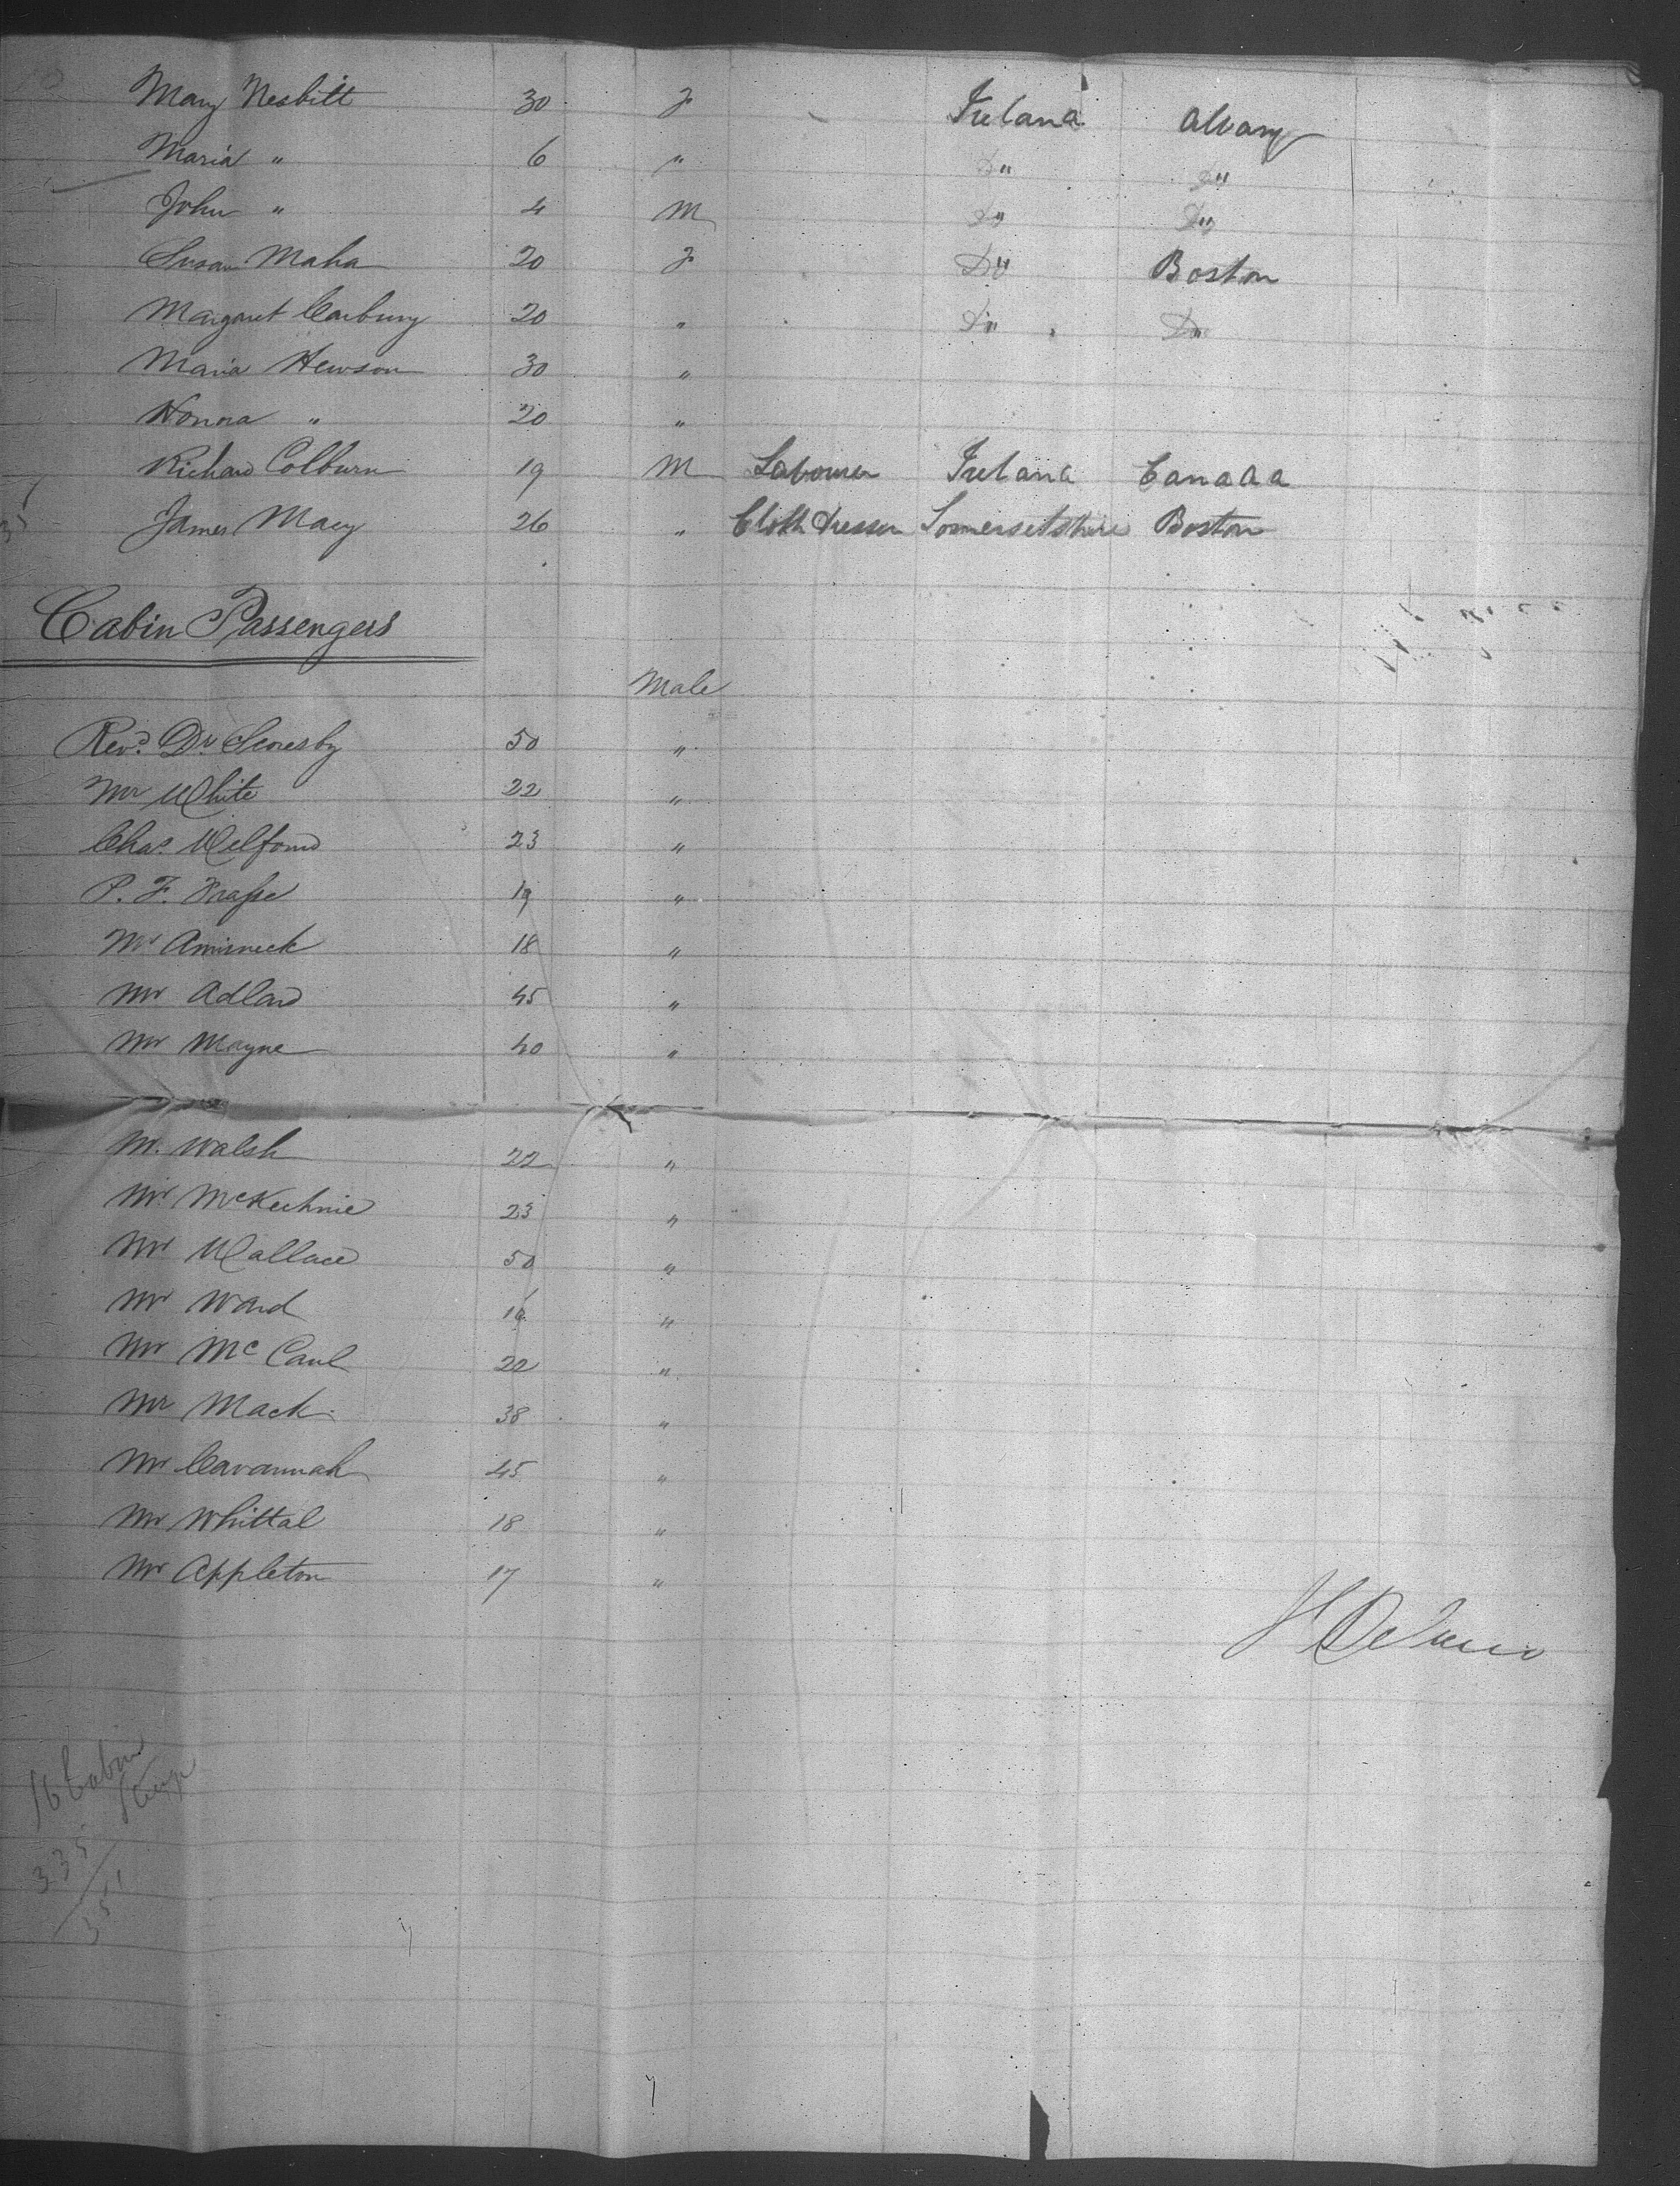 Mary Nesbitt 30 F Ireland Albany
Maria " 6 " Do" Do"
John " 4 M Do" Do"
Susan Maha 20 F Do" Boston
Margaret Carbury 20 " Do" Do"
Maria Hewson 30 "
Honora " 20 "
Richard Colburn 19 M Labourer Ireland Canada
James Macy 26 " Cloth Dresser Somersetshire Boston
Cabin Passengers
Male
Revd. Dr. Scoresby 50 "
Mr White 22 "
Chas. Welford 23 "
P. F. Frasse 19 "
Mr 18 "
Mr Adlard 45 "
Mr Mayne 40 "
M. Walsh 22 "
Mr McKechnie 23 "
Mr Wallace 50 "
Mr Ward 16 "
Mr McCaul 22 "
Mr Mack 38 "
Mr Cavannah 45 "
Mr Whittal 18 "
Mr Appleton 17 "
16 Cabin
335
351